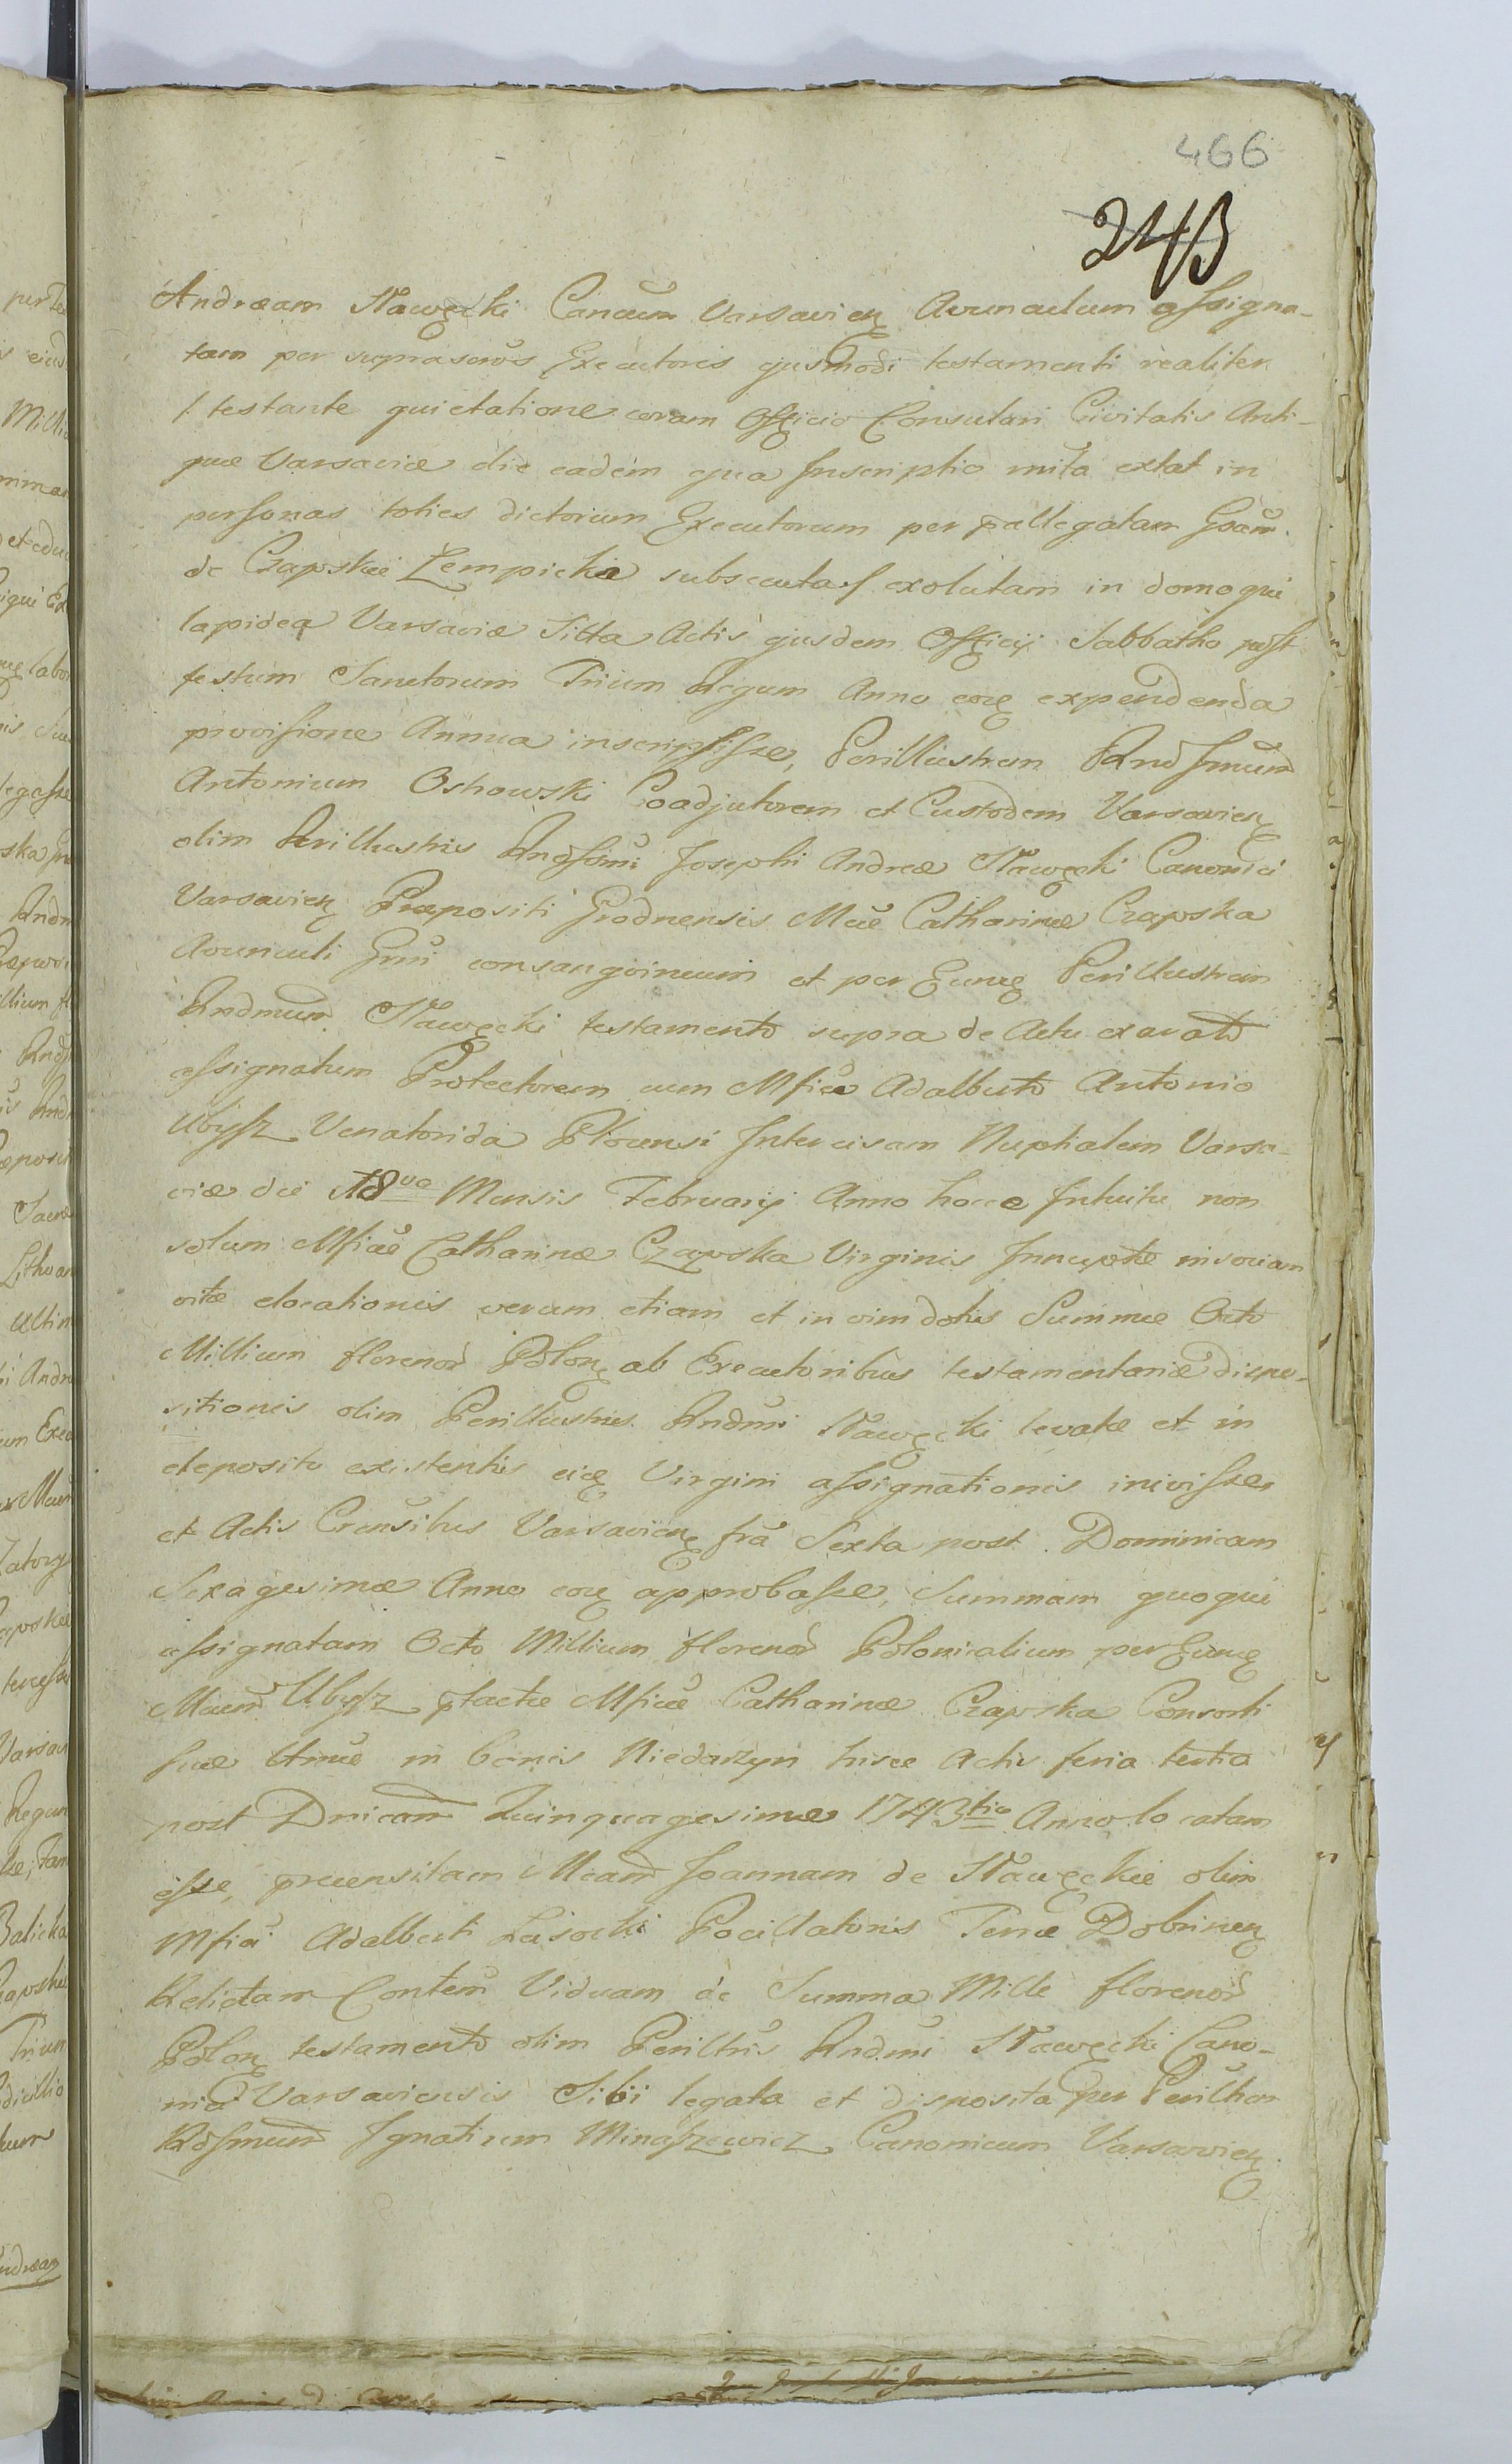 466
243
Andræam Nawęcki Cancum Varsavien Avunculum assigna-
tam per suprascros Executores ejusmodi testamenti realiter
/: testante quietatione coram Officio Consulari Civitatis Anti-
quæ Varsaviæ die eadem qua Inscriptio infta extat in
personas toties dictorum Executorum per pallegatam Gsam.
de Czapskie Łempicka subsecuta :/ exolutam in domo qui
lapidea Varsaviæ Sitta Actis ejusdem Officij Sabbatho post
festum Sanctorum Trium Regum Anno eoq expendenda
provisione Annua inscripsisse, Perillustrem Rndssmum
Antonium Ostrowski Coadjutorem et Custodem Varsavien
olim Perillustris Rndssmi Josephi Andreæ Nawęcki Canonici
Varsavien Præpositi Grodnensis Mcæ Catharinæ Czapska
Avunculi Grni consangvineum et per Eunq Perillustrem
Rndmum Nawęcki testamento supra de Actu exarato
assignatum Protectorem cum Mfico Adalberto Antonio
Ubysz Venatorida Plocensi Intercisam Nuptialem Varsa-
viæ die 18va Mensis Februarij Anno hocce Intuitu non
solum Mficæ Catharinæ Czapska Virginis Innuptæ in sociam
vitæ elocationis verum etiam et in vim dotis Summæ Octo
Millium florenor Polon ab Executoribus testamentariæ dispo-
sitionis olim Perillustris Rndmi Nawęcki levatæ et in
deposito existentis eiq Virgini assignationis inivisse,
et Actis Crensibus Varsavien fra Sexta post Dominicam
Sexagesimæ Anno eoq approbasse, Summam quoqui
assignatam Octo Millium florenor Polonicalium per Eunq
Mcum Ubysz ptactæ Mficæ Catharinæ Czapska Consorti
suæ Amæ in bonis Niedarzyn hisce Actis feria tertia
post Dnicam Quinquagesimæ 1743tio Anno locatam
esse, præensitam Mcam Joannam de Nawęckie olim
Mfici Adalberti Lasocki Pocillatoris Terræ Dobrinen
Relictam Contem Viduam de Summa Mille florenor
Polon testamento olim Perilltris Rndmi Nawęcki Cano-
nici Varsaviensis Sibi legata et disposita per Perilltrem
Rdssmum Ignatium Minaszewicz Canonicum Varsavien